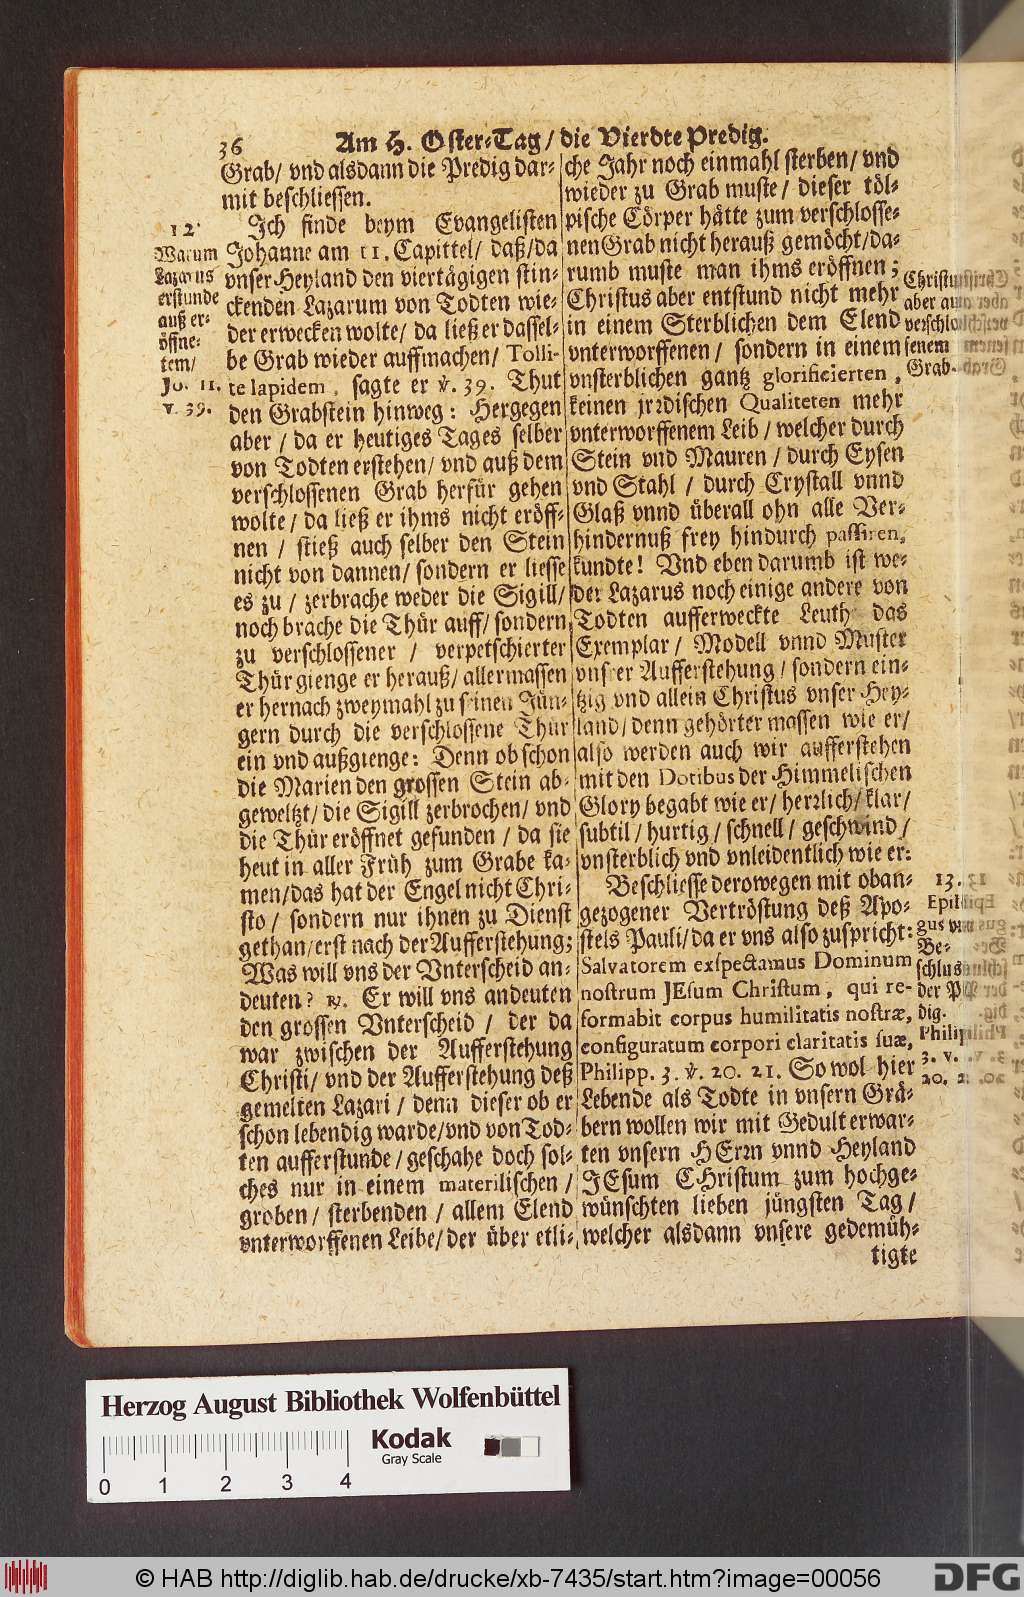 36
Am H. Oster-Tag / die Vierdte Predig.
Grab / vnd alsdann die Predig dar-
mit beschliessen.
12.
Warum
Lazarus
erstunde
auß er-
öffne-
tem /
Jo. 11.
v. 39.
Ich finde beym Evangelisten
Johanne am 11. Capittel / daß / da
vnser Heyland den viertägigen stin-
ckenden Lazarum von Todten wie-
der erwecken wolte / da ließ er dassel-
be Grab wieder auffmachen / Tolli-
te lapidem, sagte er ℣. 39. Thut
den Grabstein hinweg: Hergegen
aber / da er heutiges Tages selber
von Todten erstehen / vnd auß dem
verschlossenen Grab herfür gehen
wolte / da ließ er ihms nicht eröff-
nen / stieß auch selber den Stein
nicht von dannen / sondern er liesse
es zu / zerbrache weder die Sigill /
noch brache die Thür auff / sondern
zu verschlossener / verpetschierter
Thür gienge er herauß / allermassen
er hernach zweymahl zu seinen Jün-
gern durch die verschlossene Thür
ein vnd außgienge: Denn ob schon
die Marien den grossen Stein ab-
geweltzt / die Sigill zerbrochen / vnd
die Thür eröffnet gefunden / da sie
heut in aller Früh zum Grabe ka-
men / das hat der Engel nicht Chri-
sto / sondern nur ihnen zu Dienst
gethan / erst nach der Aufferstehung;
Was will vns der Vnterscheid an-
deuten? ℟. Er will vns andeuten
den grossen Vnterscheid / der da
war zwischen der Aufferstehung
Christi / vnd der Aufferstehung deß
gemelten Lazari / denn dieser ob er
schon lebendig warde / vnd von Tod-
ten aufferstunde / geschahe doch sol-
ches nur in einem materilischen /
groben / sterbenden / allem Elend
vnterworffenen Leibe / der über etli-
che Jahr noch einmahl sterben / vnd
wieder zu Grab muste / dieser töl-
pische Cörper hätte zum verschlosse-
nen Grab nicht herauß gemöcht / da-
rumb muste man ihms eröffnen;
Christus aber entstund nicht mehr
in einem Sterblichen dem Elend
vnterworffenen / sondern in einem
vnsterblichen gantz glorificierten,
keinen jrrdischen Qualiteten mehr
vnterworffenem Leib / welcher durch
Stein vnd Mauren / durch Eysen
vnd Stahl / durch Crystall vnnd
Glaß vnnd überall ohn alle Ver-
hindernuß frey hindurch passiren,
kundte! Vnd eben darumb ist we-
der Lazarus noch einige andere von
Todten aufferweckte Leuth das
Exemplar / Modell vnnd Muster
vnserer Aufferstehung / sondern ein-
tzig vnd allein Christus vnser Hey-
land / denn gehörter massen wie er /
also werden auch wir aufferstehen
mit den Dotibus der Himmelischen
Glory begabt wie er / herzlich / klar /
subtil / hurtig / schnell / geschwind /
vnsterblich vnd vnleidentlich wie er:
Beschliesse derowegen mit oban-
gezogener Vertröstung deß Apo-
stels Pauli / da er vns also zuspricht:
Salvatorem exspectamus Dominum
nostrum JEsum Christum, qui re-
formabit corpus humilitatis nostræ,
configuratum corpori claritatis suæ,
Philipp. 3. ℣. 20. 21. So wol hier
Lebende als Todte in vnsern Grä-
bern wollen wir mit Gedult erwar-
ten vnsern HErrn vnnd Heyland
JEsum CHristum zum hochge-
wünschten lieben jüngsten Tag /
welcher alsdann vnsere gedemüh-
tigte
Christus
aber auß
verschlos
senem
Grab.
13.
Epilo
gus vnd
Be-
schlus
der P
dig.
Philip
3. v.
20. 21.
Herzog August Bibliothek Wolfenbüttel
0 1 2 3 4
Kodak
Gray Scale
© HAB http://diglib.hab.de/drucke/xb-7435/start.htm?image=00056
DFG